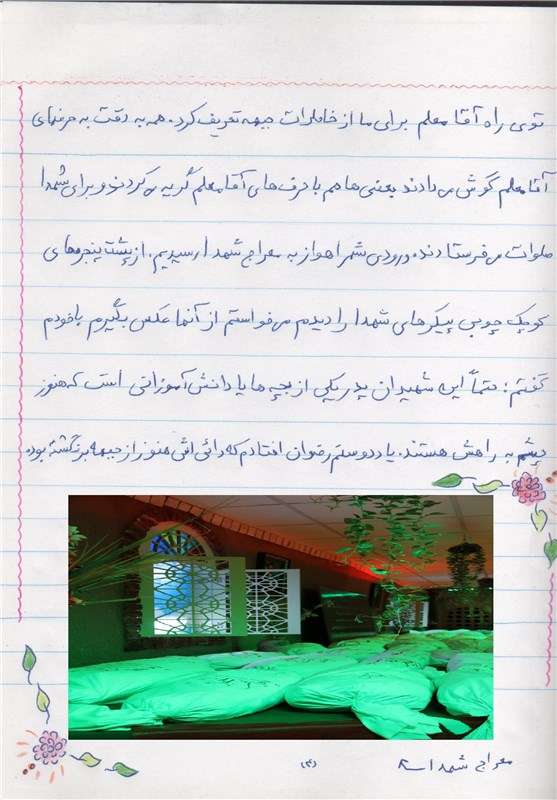 توی راه آقا معلم برای ما از خاطرات جبهه تعریف کرد. همه به دقت به حرفهای
آقا معلم گوش می دادند بعضی ها هم با حرف های آقا معلم گریه می کردند و برای شهدا
صلوات می فرستادند. ورودی شهر اهواز به معراج شهدا رسیدیم. از پشت پنجره‌های
کوچک چوبی پیکرهای شهدا را دیدم می خواستم از آنها عکس بگیرم با خودم
گفتم: حتماً این شهیدان پدر یکی از بچه ها یا دانش آموزانی است که هنوز
چشم به راهش هستند. یاد دوستم رضوان افتادم که دائی اش هنوز از جبهه برنگشته بود.
(۳)
معراج شهدا